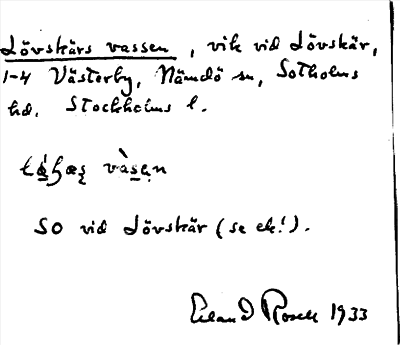 Lövskärs vassen, vik vid Lövskär,
1-4 Västerby, Nämdö sn, Sotholms
hd. Stockholms l.
vàsen
SO vid Lövskär (se ek!).
Erland Rosell 1933